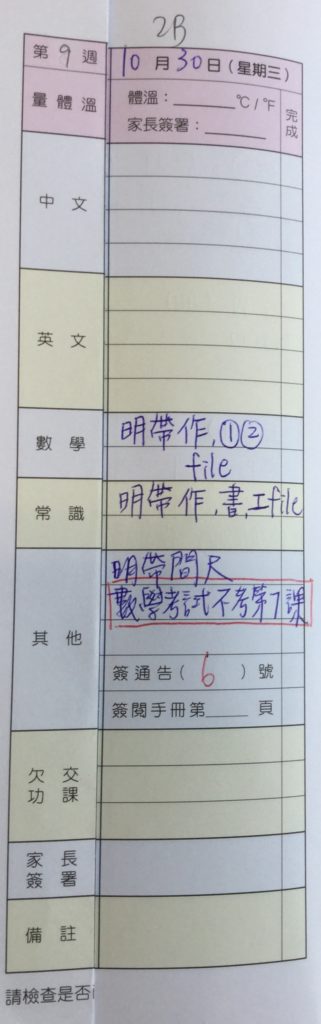 2B
第 9 週 10 月 30 日 (星期三)
量體溫 體溫：______℃/℉ 完成
家長簽署：______
中文
英文
數學 明帶作,①②
file
常識 明帶作,書,工file
其他 明帶間尺
數學考試不考第7課
簽通告( 6 )號
簽閱手冊第____頁
欠交功課
家長簽署
備註
請檢查是否